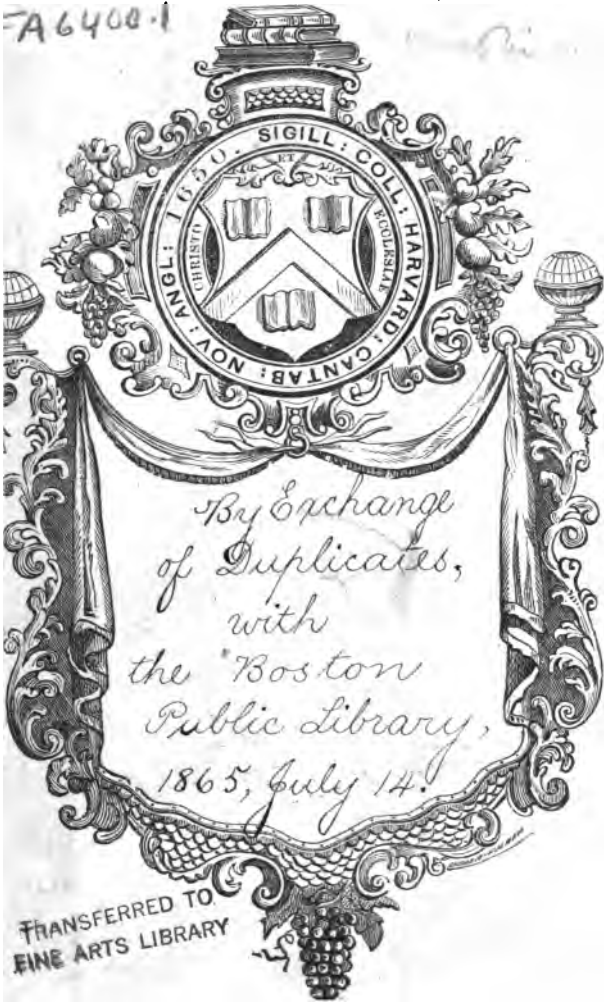 FA6400.1
SIGILL: COLL: HARVARD: CANTAB: NOV: ANGL: 1650.
ET
CHRISTO
ECCLESIAE
By Exchange
of Duplicates,
with
the Boston
Public Library,
1865, July 14.
TRANSFERRED TO
FINE ARTS LIBRARY